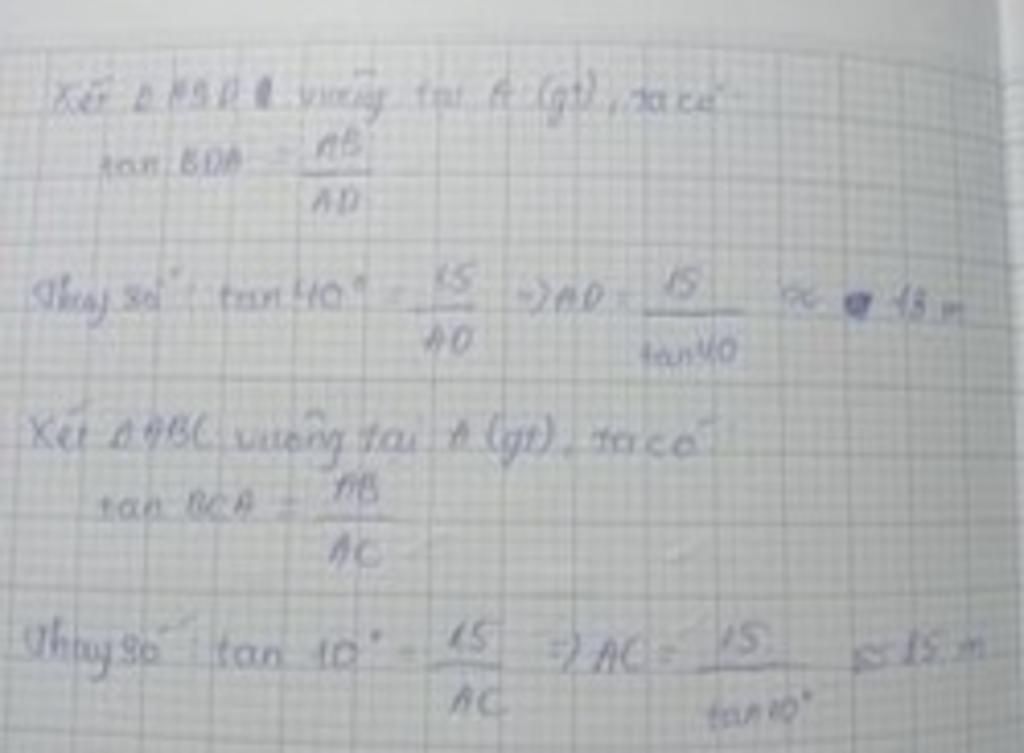 Xét Δ ABD vuông tại A (gt), ta có
tan BDA = AB / AD
Thay số: tan 40° = 15 / AD => AD = 15 / tan40 ≈ 18 m
Xét Δ ABC vuông tại A (gt), ta có
tan BCA = AB / AC
Thay số: tan 10° = 15 / AC => AC = 15 / tan10° ≈ 15 m